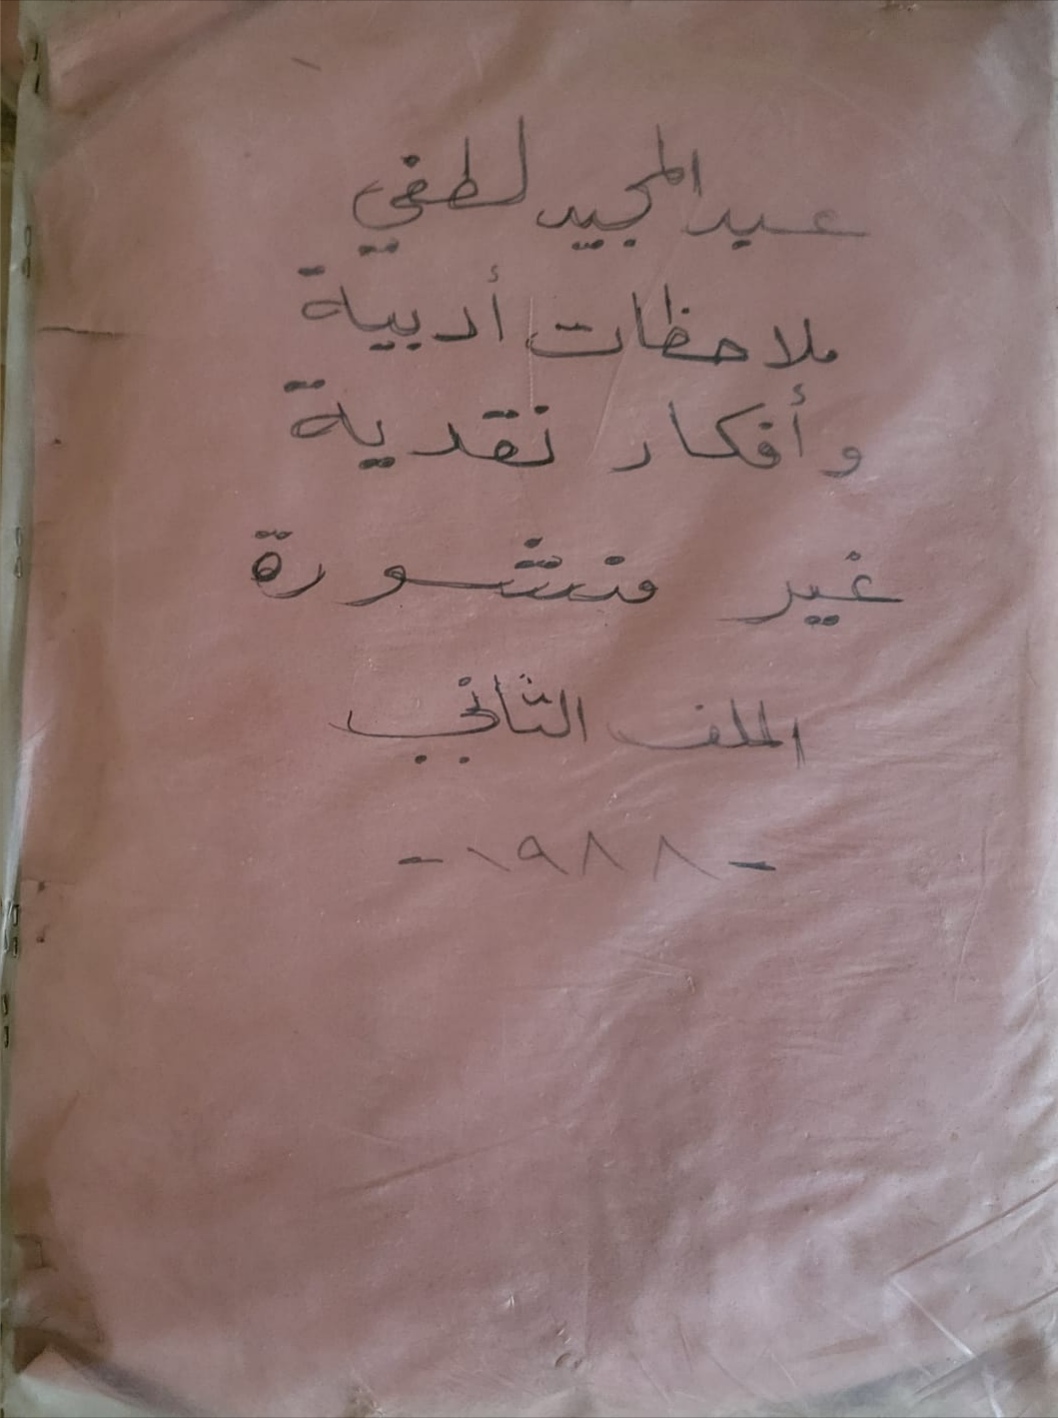 عبد المجيد لطفي
ملاحظات أدبية
وأفكار نقدية
غير منشورة
الملف الثاني
- ١٩٨٨ -